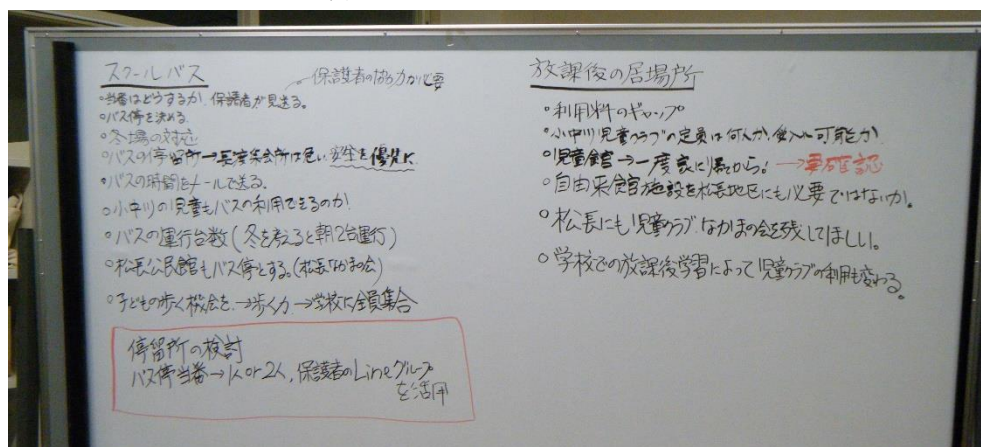 スクールバス
保護者の協力が必要
○当番はどうするか、保護者が見送る。
○バス停を決める
○冬場の対応
○バスの停留所→長渡集会所は危い 安全を優先に
○バスの時間をメールで送る。
○小中川の児童もバスの利用できるのか
○バスの運行台数(冬を考えると朝2台運行)
○松長公民館もバス停とする。(松長なかまの会)
○子どもの歩く機会を→歩く力→学校に全員集合
停留所の検討
バス停当番→1人or2人,保護者のLineグループ
を活用
放課後の居場所
○利用料のギャップ
○小中川児童クラブの定員は何人か,受入れ可能か
○児童館→一度家に帰から! →要確認
○自由来館施設を松長地区にも必要ではないか。
○松長にも児童クラブ、なかまの会を残してほしい。
○学校での放課後学習によって児童クラブの利用も変わる。